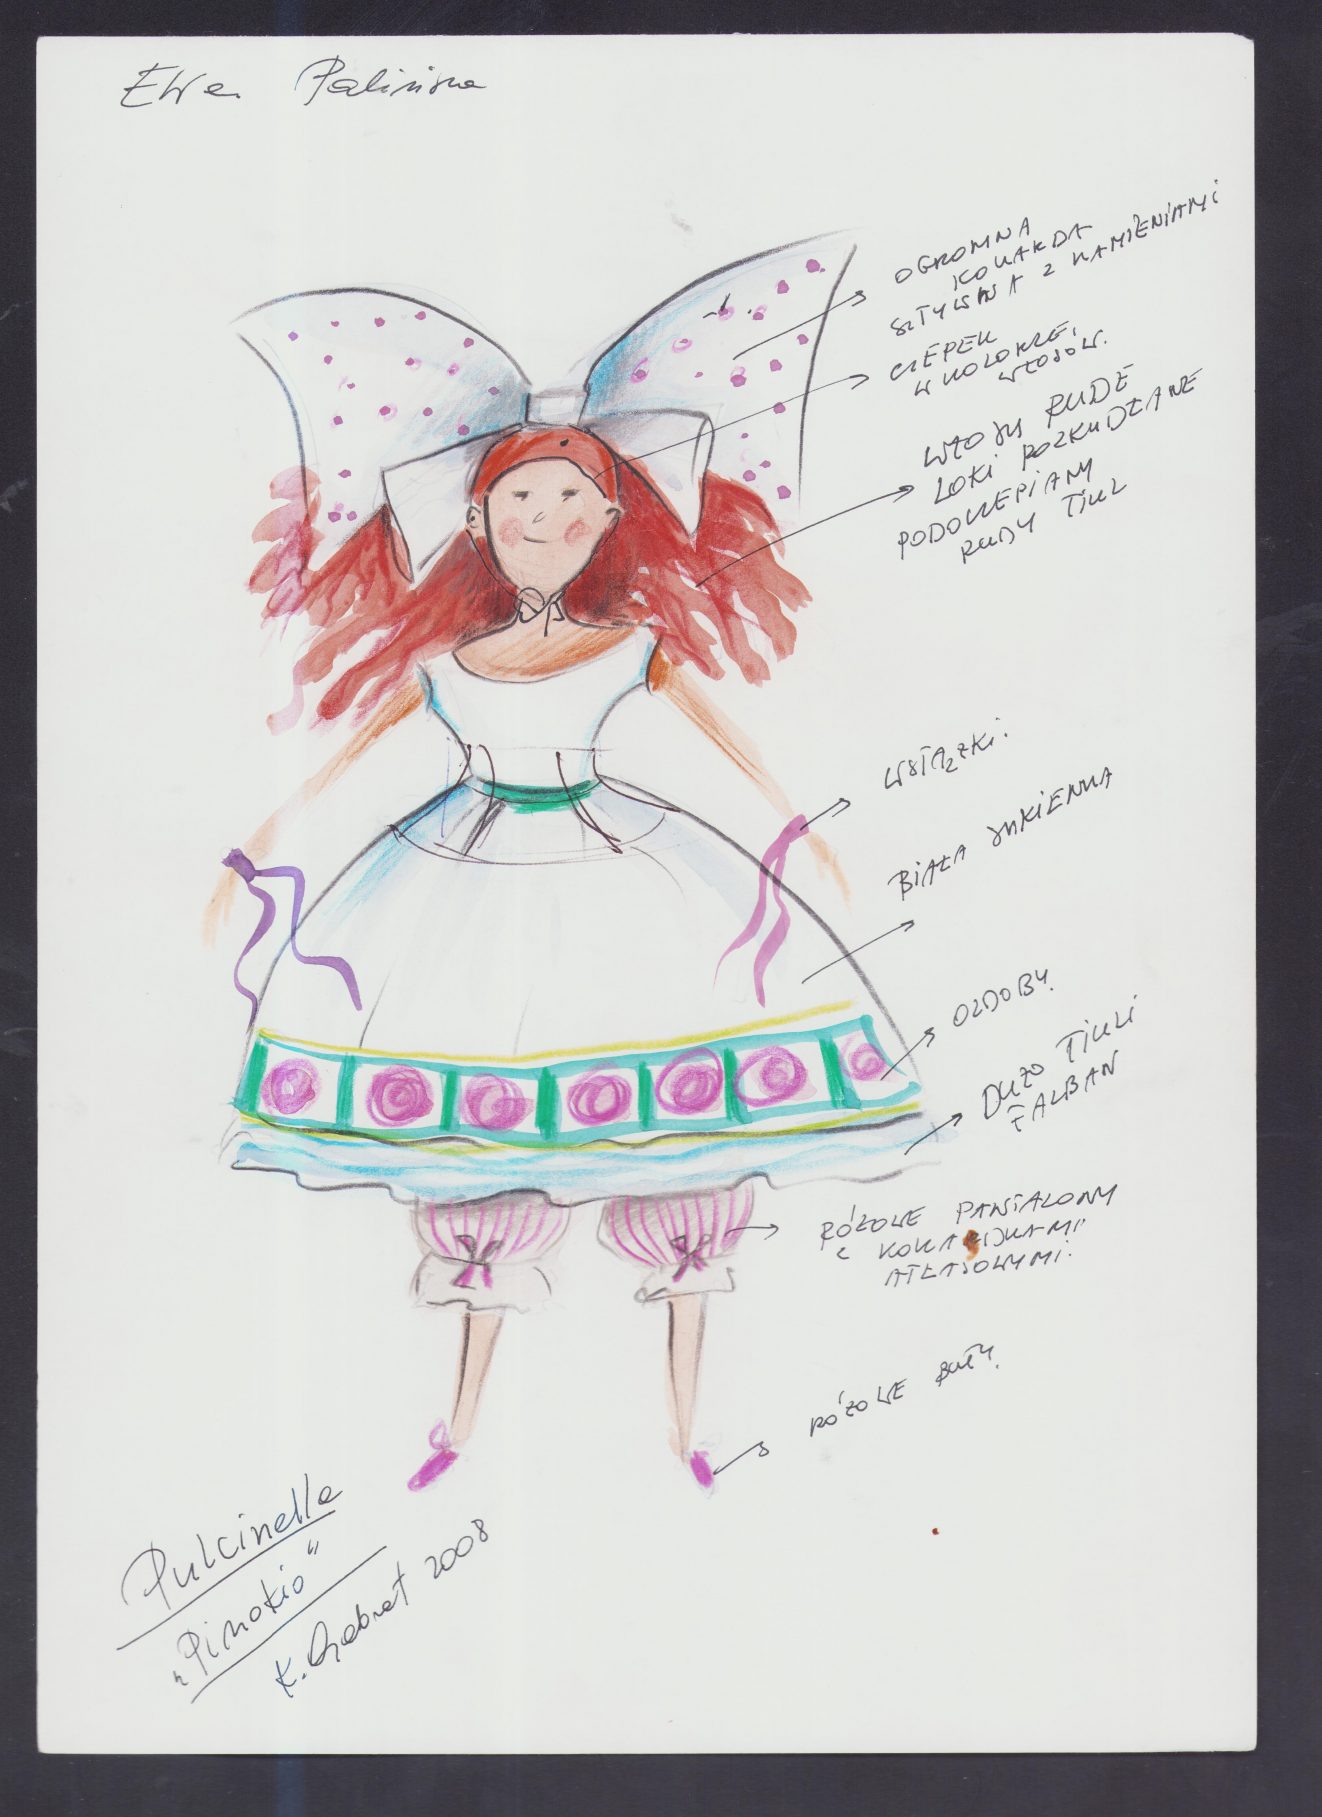 Ewa Palińska
OGROMNA
KOKARDA
SZTYWNA Z KAMIENIAMI
CZEPEK
W KOLORZE
WŁOSÓW.
WŁOSY RUDE
LOKI ROZKUDŁANE
PODOKLEPIANY
RUDY TIUL
WSTĄŻKI.
BIAŁA SUKIENKA
OZDOBY.
DUŻO TIULI
FALBAN
RÓŻOWE PANTALONY
Z KOKARDKAMI
ATŁASOWYMI.
RÓŻOWE BUTY.
Pulcinella
„Pinokio"
K. 2008